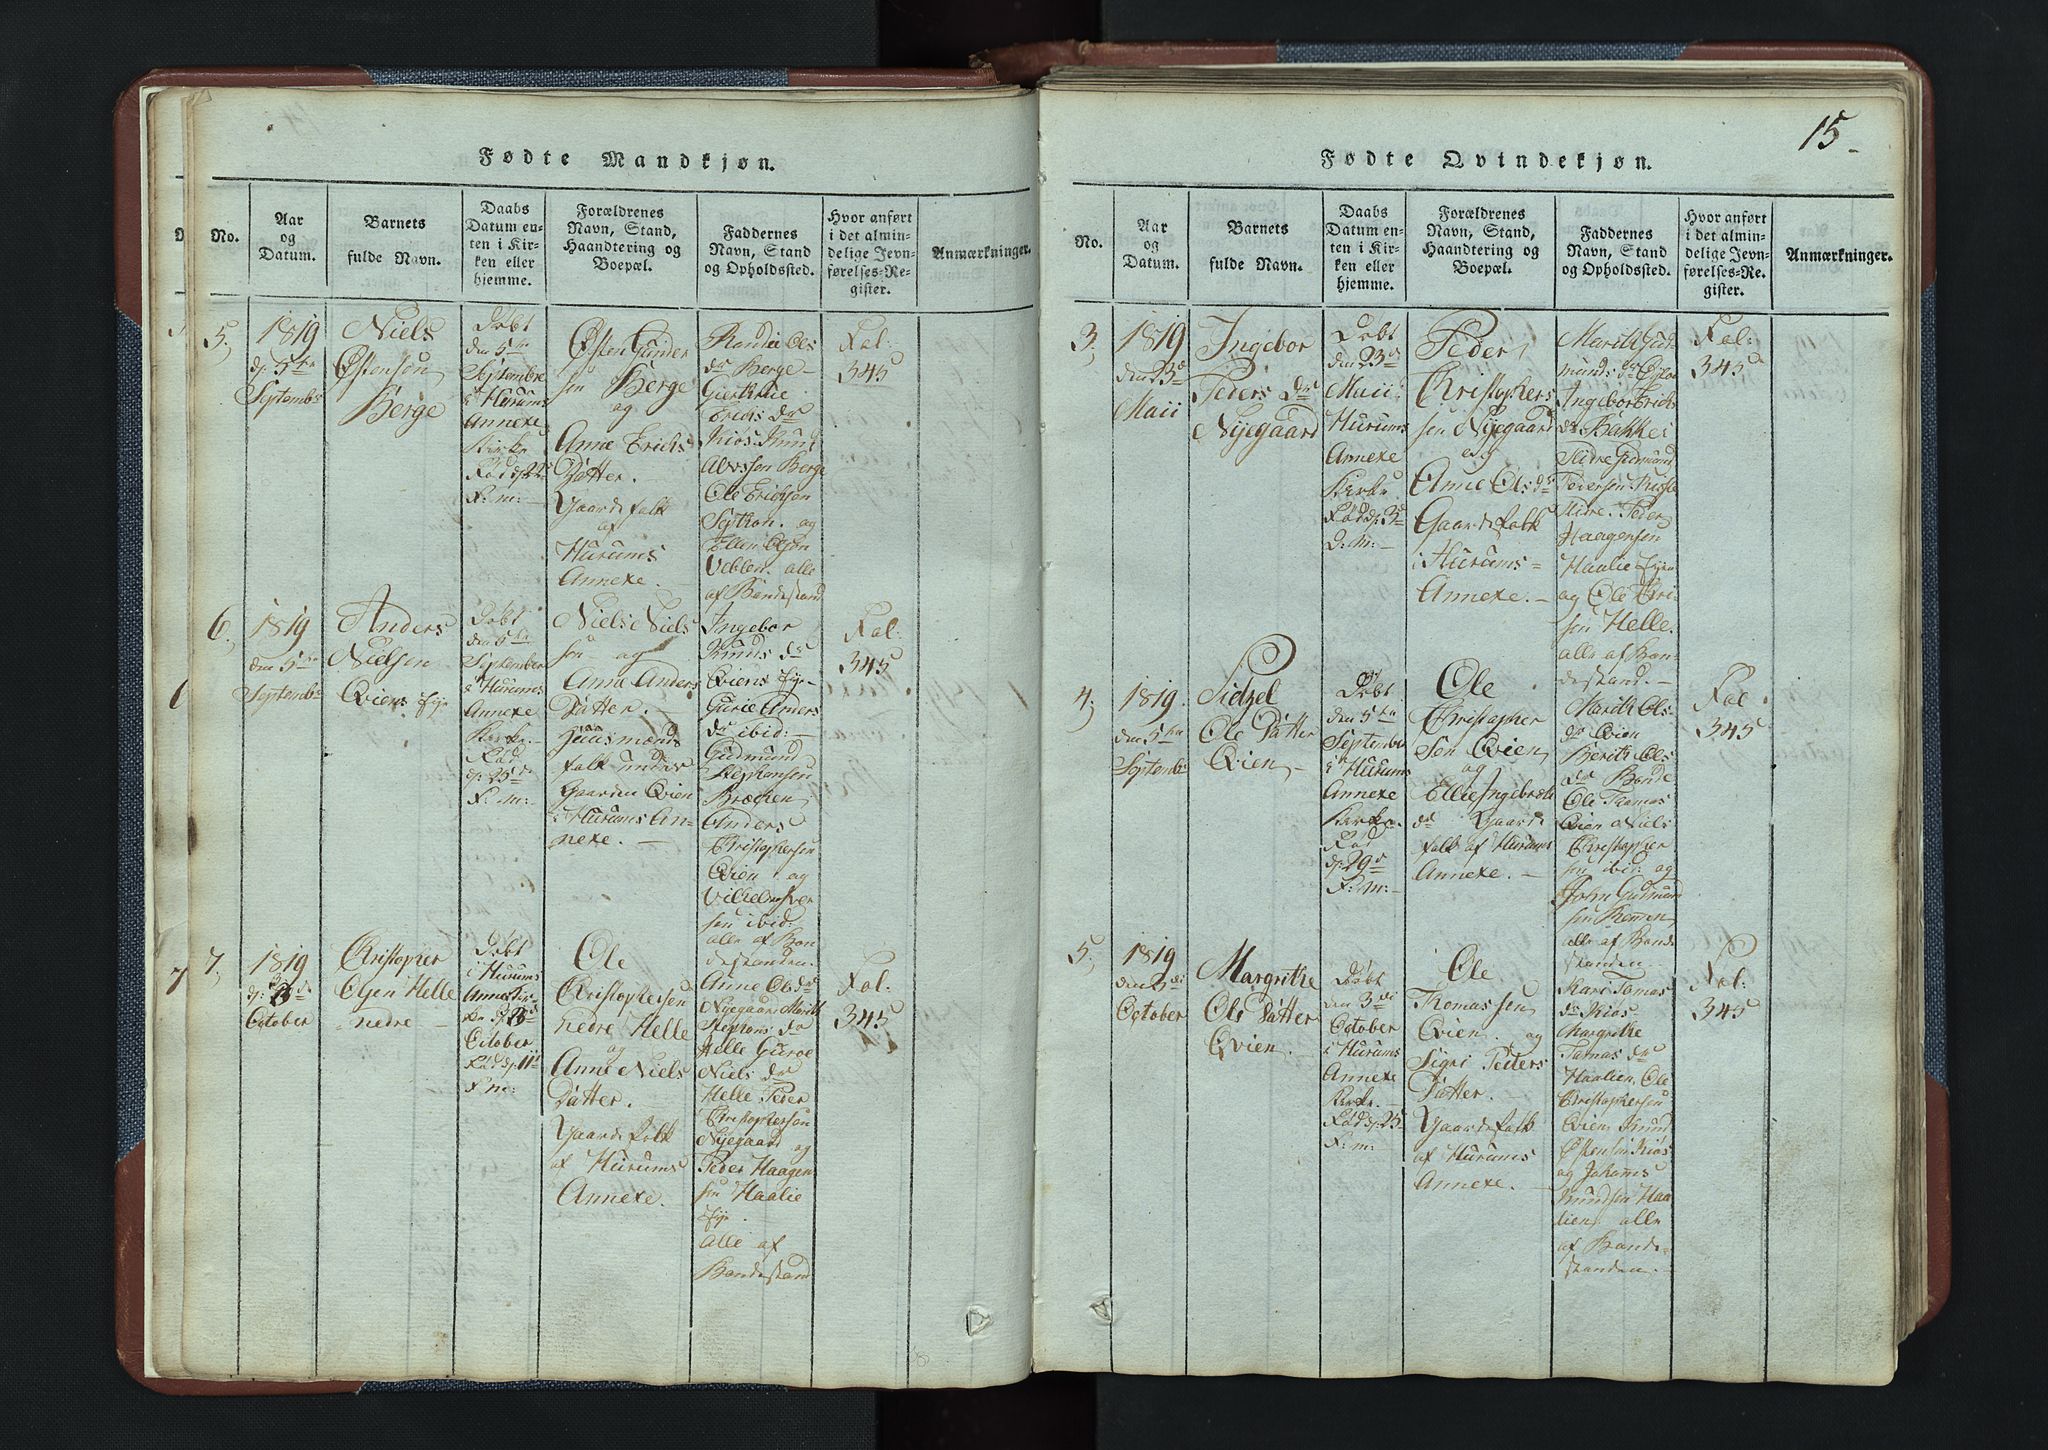 15
Fødte Mandkjøn.
No.
Aar
og
Datum.
Barnets
fulde Navn.
Daabs
Datum en-
ten i Kir-
ken eller
hjemme.
Forældrenes
Navn, Stand,
Haandtering og
Boepæl.
Faddernes
Navn, Stand
og Opholdssted.
Hvor anført
i det almin-
delige Jevn-
førelses-Re-
gister.
Anmærkninger.
5,
1819
d. 5te
Septembr
Niels
Østensøn
Berge
Døbt
den 5te
Septembr
i Hurums
Annexe
Kirke
F: m: -
Østen Gunder
sen Berge
og
Anne Erichs
Datter. -
Gaardefolk
af
Hurums
Annexe. -
Randi Ols
dr Berge -
dr
Knud
Berge
Ole Erichsen
og
alle
af Bondestand
Fol:
345
6,
1819
den 5te
Septembr
Anders
Nielsen
Qviens Eje
Døbt
den 5te
September
i Hurums
Annexe
Kirke. -
Fød
d. 25de
F: m: -
Niels Niels
søn og
Anna Anders
Datter. -
Huusmands
folk under
Gaarden Qvien
i Hurums An-
nexe. -
Ingebor
Knuds dr
Qviens Eje -
Gurie Anders
dr ibid: -
Gudmund
Stephensen
Anders
Christophersen
Qvien og
sen ibid:
alle af Bon
destanden.
Fol:
345
7,
1819
October
Christopher
Olsen Helle
nedre -
Døbt
i Hurums
October
Fød d. 11te
F: m:
Ole
Christophersen
nedre Helle
og
Anne Niels
Datter. -
Gaardefolk
af Hurums
Annexe. -
Anne Ols dr
Nijegaard Marith
Helle Guroe
Niels dr
Helle Peder
Christophersen
Nijegaard og
Peder Haagen
sen Haalie
Eje.
Alle af
Bondestand
Fol:
345
Fødte Qvindekjøn.
No.
Aar
og
Datum.
Barnets
fulde Navn.
Daabs
Datum en-
ten i Kir-
ken eller
hjemme.
Forældrenes
Navn, Stand,
Haandtering og
Boepæl.
Faddernes
Navn, Stand
og Opholdssted.
Hvor anført
i det almin-
delige Jevn-
førelses-Re-
gister.
Anmærkninger.
3,
1819
den 23de
Maii
Ingebor
Peders Dr
Nijegaard
Døbt
den 23de
Maii i
Hurums
Annexe
Kirke
Fød d. 3de
D: M: -
Peder
Christophers
sen Nijegaard
og
Anne Ols dr
Gaardefolk
i Hurums -
Annexe. -
Marith Gud
munds dr
Ingebor Erichs
dr Bakke
Slidre Gudmund
Pedersen
Slidre. Peder
Haagensen
Haalie Eje
og Ole
sen Helle.
alle af Bon-
destand. -
Fol:
345
4,
1819
den 5te
Septembr
Sidzel
Ole Datter
Qvien -
Døbt
den 5te
September
i Hurums
Annexe
Kirke.
Fød
d. 29de
F: M: -
Ole
Christopher
Søn Qvien
og
Ellie Ingebrets
dr Gaarde
folk af Hurums
Annexe. -
Marith Ols
dr Qvien
Berith Ols
dr
Ole Thomas
Qvien Niels
Christopher
sen ibid: og
John Gudmund
sen
alle af Bonde
standen.
Fol
345
5,
1819
den 3die
October
Margrithe
Ole Datter
Qvien. -
Døbt
den 3die
October
i Hurums
Annexe
Kirke. -
Fød d. 25
F: m: -
Ole
Thomassen
Qvien. og
Sigri Peders
Datter. -
Gaardefolk
af Hurums
Annexe. -
Mari Tomas
dr Kiøs
Margrithe
Tomas dr
Haalien. Ole
Christophersen
Qvien, Knud
Østensøn Kiøs
og Johannes
Knudsen Haa
lien, alle
af Bonde-
standen. -
Fol:
345